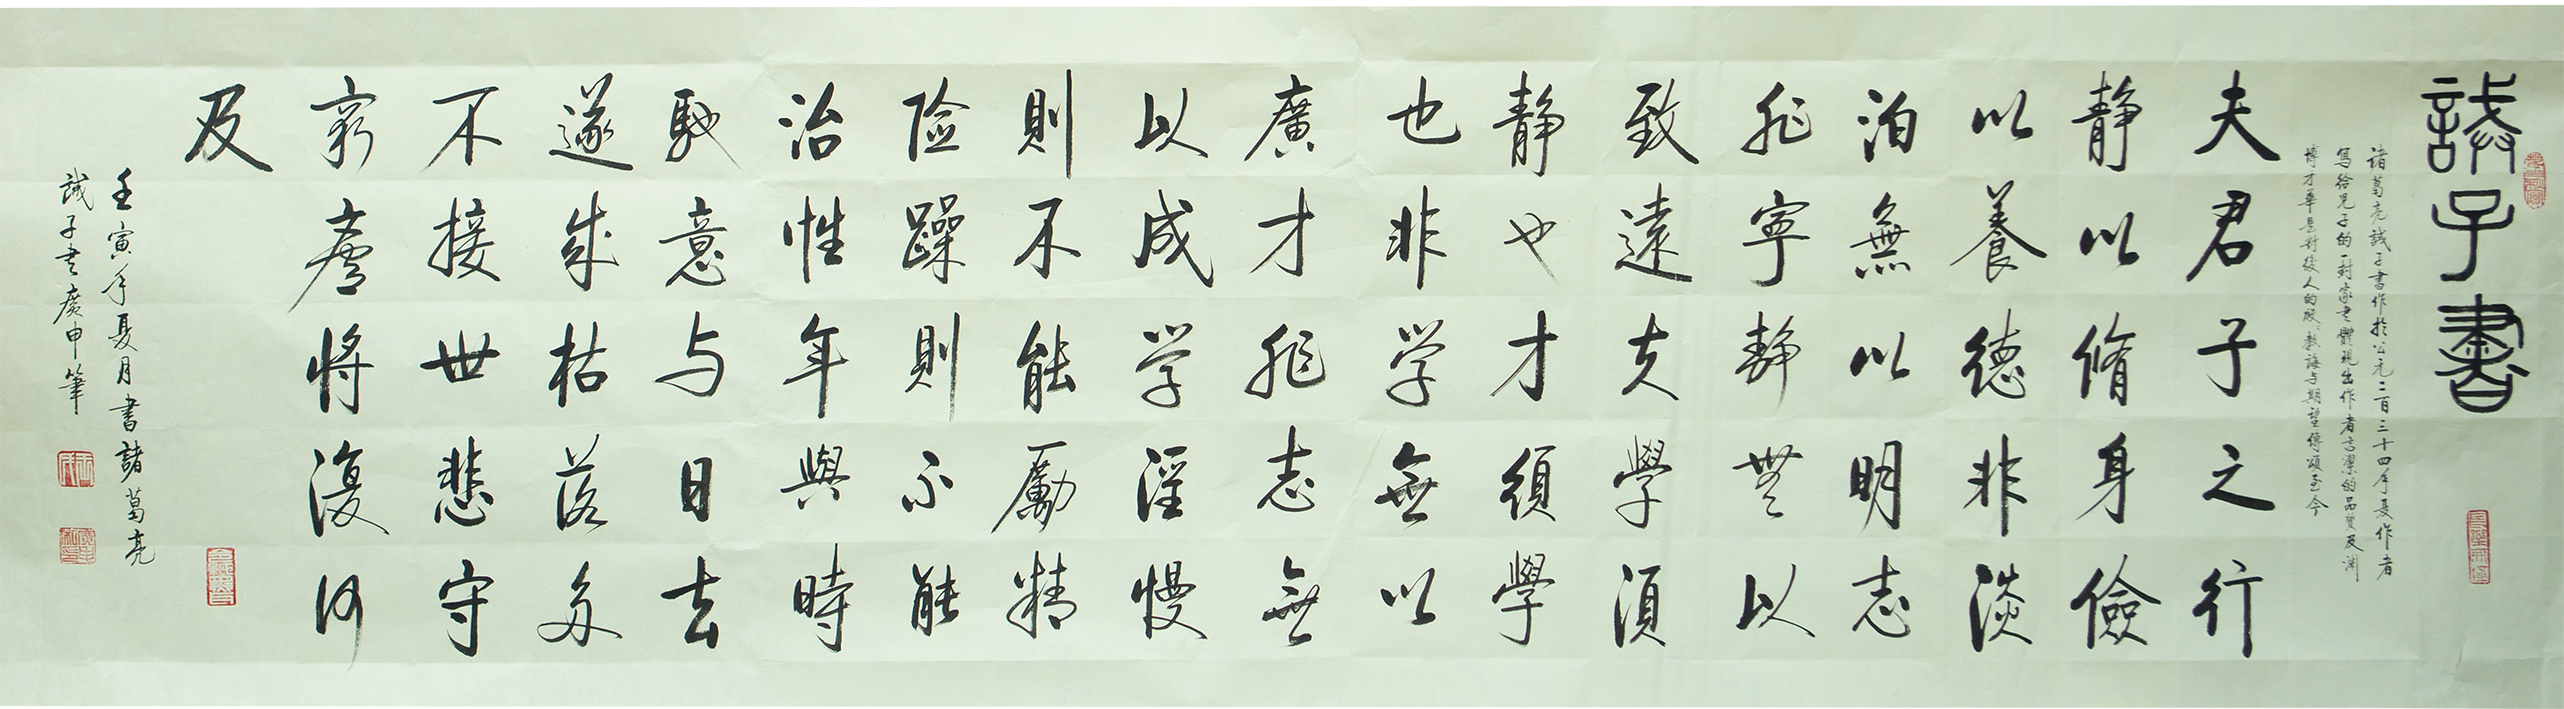 誡子書
諸葛亮誡子書作於公元二百三十四年夏作者
寫給兒子的一封家書體現出作者高潔的品質及淵
博才華是對後人的殷殷教誨与期望傳頌至今
夫君子之行
静以脩身儉
以養德非淡
泊無以明志
非寧静無以
致遠夫學須
静也才須學
也非学無以
廣才非志無
以成学淫慢
則不能勵精
险躁則不能
治性年與時
馳意与日去
遂成枯落多
不接世悲守
窮廬将復何
及
壬寅年夏月書諸葛亮
誡子書廣申筆